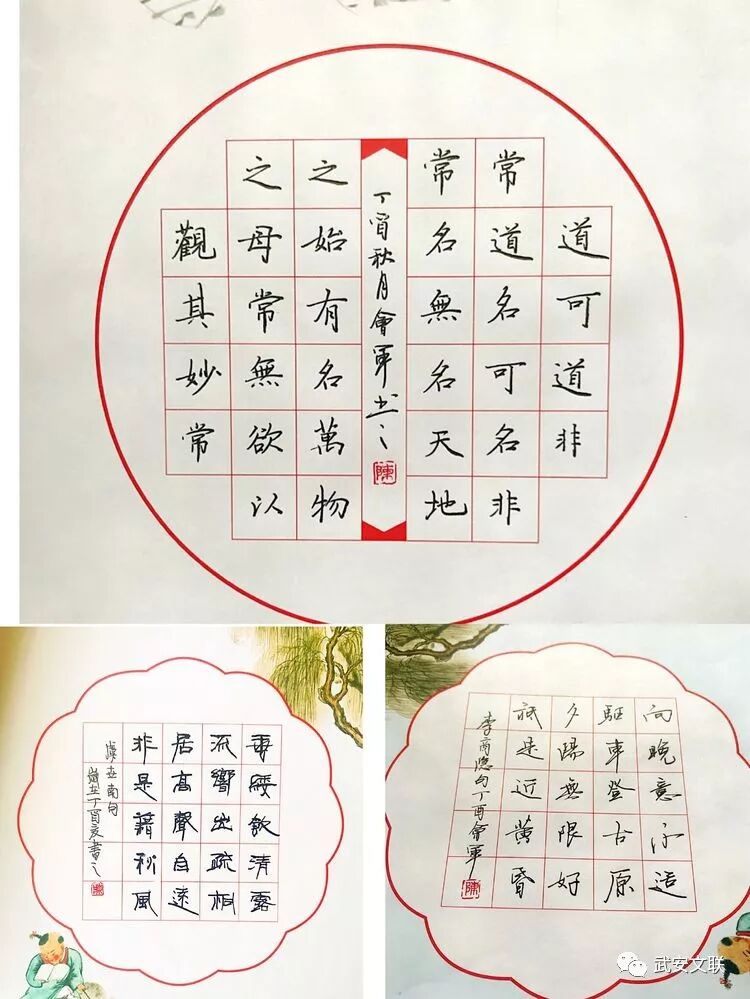 道可道非
常道名可名非
常名無名天地
丁酉秋月會軍书之
陳
之始有名萬物
之母常無欲以
觀其妙常
垂緌飲清露
流響出疏桐
居高聲自遠
非是藉秋風
虞世南句
歲在丁酉 書之
向晚意不适
駈車登古原
夕陽無限好
祇是近黄昏
李商隐句丁酉會軍
陳
武安文联